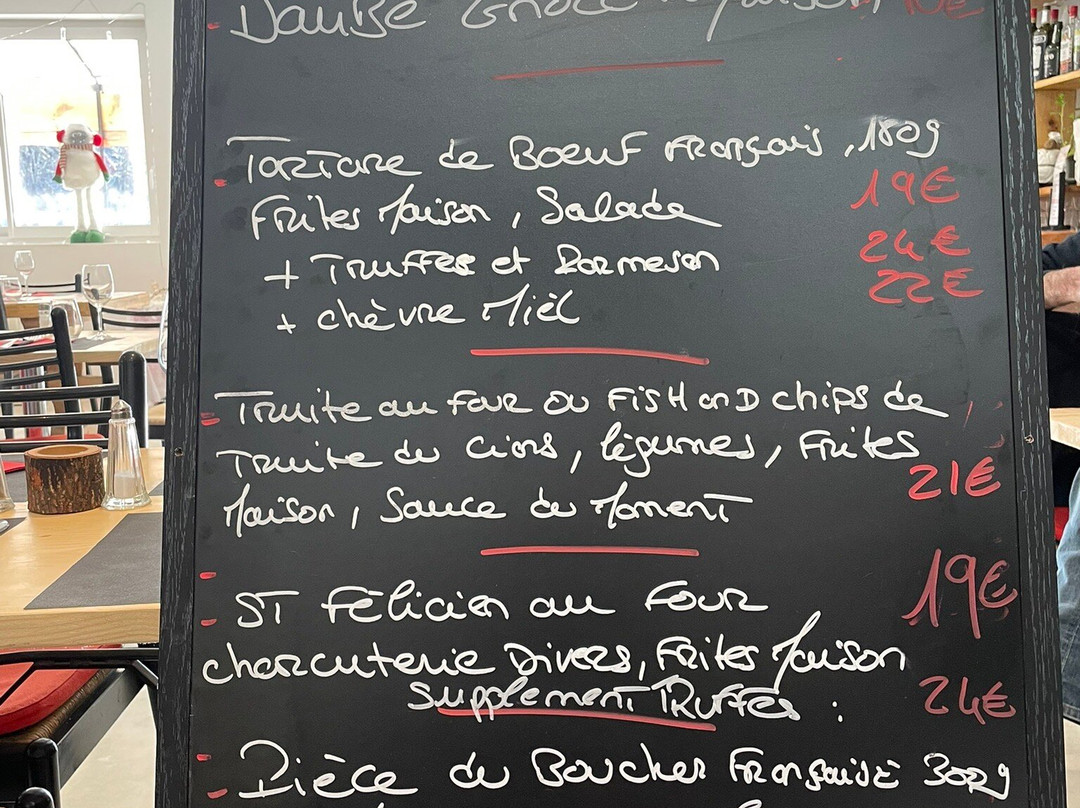 - Daube
- Tartare de Boeuf Français, 180g
19€
Frites Maison, Salade
+ Truffes et Parmesan 24€
+ chèvre Miel 22€
- Truite au four ou Fish and chips de
Truite du Cians, légumes, Frites
21€
Maison, Sauce du Moment
- ST Félicien au four 19€
charcuterie Divers, Frites Maison
Supplement Truffes : 24€
- Pièce du Boucher Française 300g